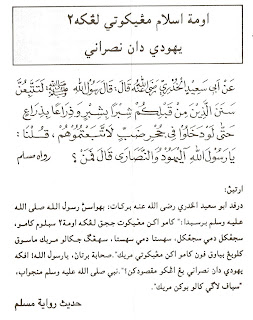 اومة اسلام مڠيكوتي لڠكه٢
يهودي دان نصراني
عَنْ أَبِي سَعِيدٍ الْخُدْرِيِّ رَضِيَ اللهُ عَنْهُ قَالَ: قَالَ رَسُولُ اللهِ ﷺ: لَتَتَّبِعُنَّ
سَنَنَ الَّذِينَ مِنْ قَبْلِكُمْ شِبْرًا بِشِبْرٍ وَذِرَاعًا بِذِرَاعٍ
حَتَّى لَوْ دَخَلُوا فِي جُحْرِ ضَبٍّ لَاتَّبَعْتُمُوهُمْ، قُلْنَا:
يَارَسُولَ اللهِ آلْيَهُودَ وَالنَّصَارَى قَالَ فَمَنْ؟
رواه مسلم
ارتيڽ:
درفد ابو سعيد الخدري رضي الله عنه بركات: بهواسڽ رسول الله صلى الله
عليه وسلم برسبدا: "كامو اكن مڠيكوت ججق لڠكه اومة٢ سبلوم كامو،
سجڠكل دمي سجڠكل، سهستا دمي سهستا، سهڠݢ جكالو مريك ماسوق
كلوبڠ بياوق فون كامو اكن مڠيكوتي مريك". صحابة برتاڽ، يارسول الله! افكه
يهودي دان نصراني يڠ اڠكو مقصودكن؟". نبي صلى الله عليه وسلم منجواب،
"سياف لاݢي كالو بوكن مريك".
حديث رواية مسلم